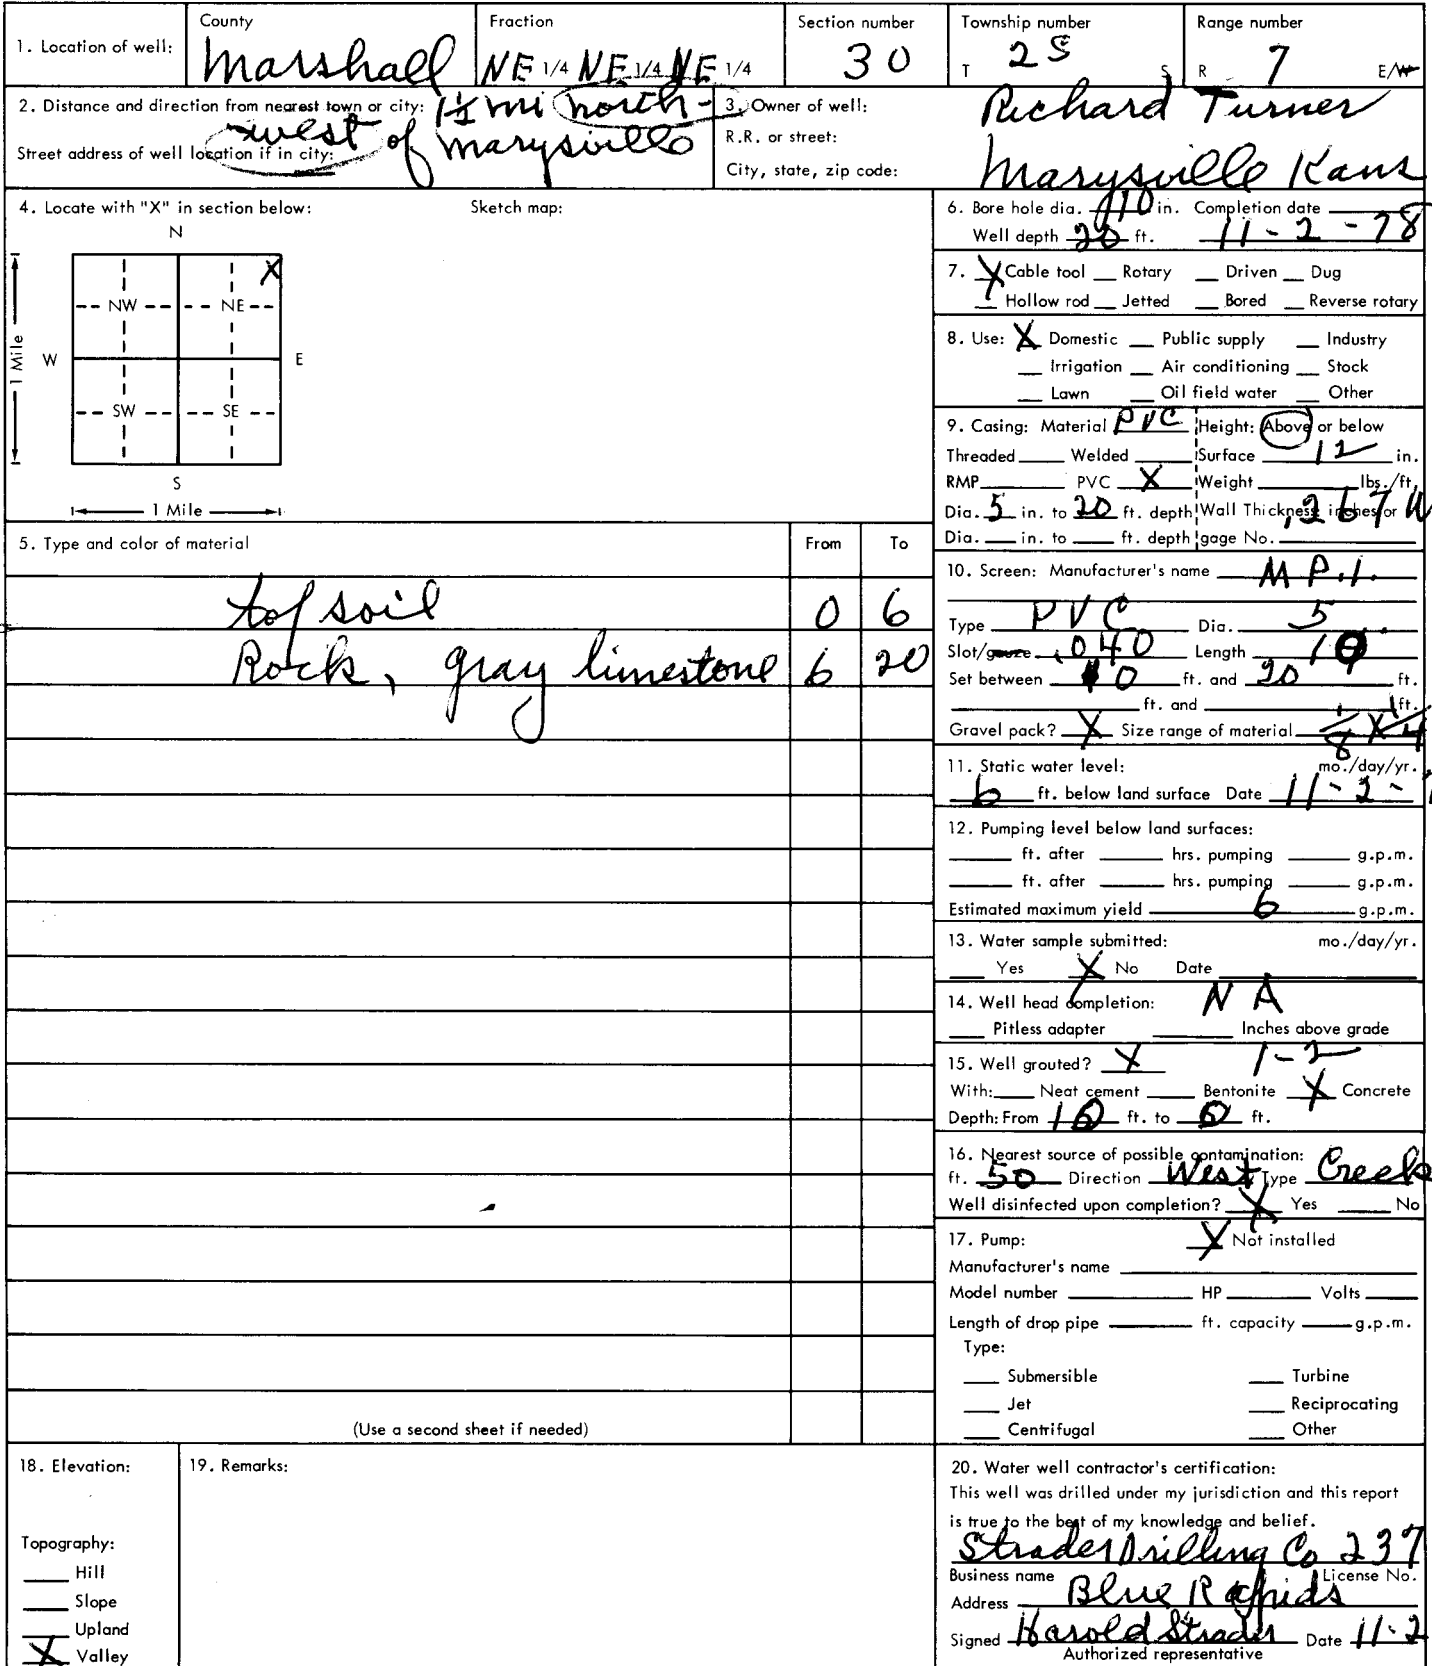 1. Location of well: County Marshall Fraction NE 1/4 NE 1/4 NE 1/4 Section number 30 Township number T 2S S Range number R 7 E/W
2. Distance and direction from nearest town or city: 1½ mi north-
west of Marysville
Street address of well location if in city:
3. Owner of well: Richard Turner
R.R. or street:
City, state, zip code: Marysville Kans
4. Locate with "X" in section below: Sketch map:
N
X
NW NE
W E
1 Mile
SW SE
S
1 Mile
5. Type and color of material From To
top soil 0 6
Rock, gray limestone 6 20
(Use a second sheet if needed)
6. Bore hole dia. 10 in. Completion date
Well depth 20 ft. 11-2-78
7. X Cable tool Rotary Driven Dug
Hollow rod Jetted Bored Reverse rotary
8. Use: X Domestic Public supply Industry
Irrigation Air conditioning Stock
Lawn Oil field water Other
9. Casing: Material PVC Height: Above or below
Threaded Welded Surface 12 in.
RMP PVC X Weight lbs./ft.
Dia. 5 in. to 20 ft. depth Wall Thickness: inches or .267 W
Dia. in. to ft. depth gage No.
10. Screen: Manufacturer's name M P.I.
Type PVC Dia. 5
Slot/gauze .040 Length 10
Set between 10 ft. and 20 ft.
ft. and ft.
Gravel pack? X Size range of material 1/8 X 1/4
11. Static water level: mo./day/yr.
6 ft. below land surface Date 11-2-
12. Pumping level below land surfaces:
ft. after hrs. pumping g.p.m.
ft. after hrs. pumping g.p.m.
Estimated maximum yield 6 g.p.m.
13. Water sample submitted: mo./day/yr.
Yes X No Date
14. Well head completion: NA
Pitless adapter Inches above grade
15. Well grouted? X 1-2
With: Neat cement Bentonite X Concrete
Depth: From 10 ft. to 0 ft.
16. Nearest source of possible contamination:
ft. 50 Direction West Type Creek
Well disinfected upon completion? X Yes No
17. Pump: X Not installed
Manufacturer's name
Model number HP Volts
Length of drop pipe ft. capacity g.p.m.
Type:
Submersible Turbine
Jet Reciprocating
Centrifugal Other
18. Elevation:
Topography:
Hill
Slope
Upland
X Valley
19. Remarks:
20. Water well contractor's certification:
This well was drilled under my jurisdiction and this report
is true to the best of my knowledge and belief.
Strader Drilling Co 237
Business name License No.
Address Blue Rapids
Signed Harold Strader Date 11-2
Authorized representative